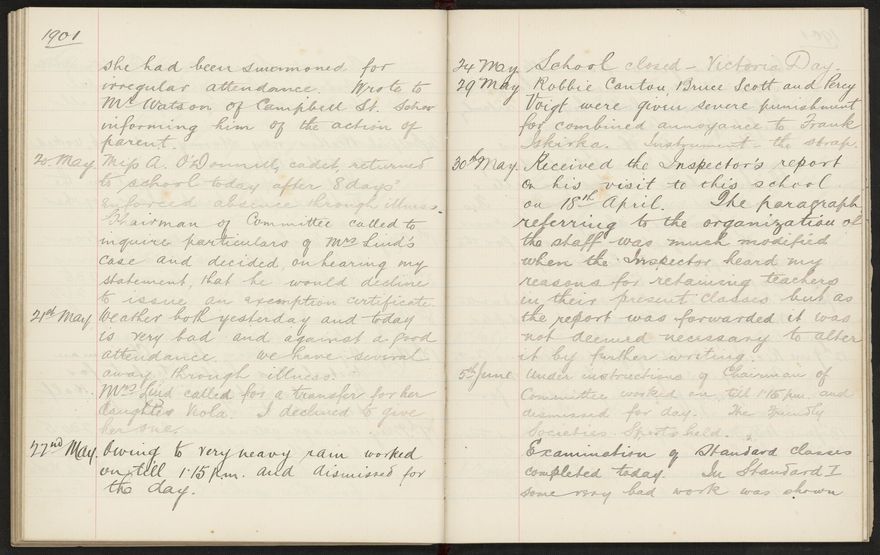 1901
she had been summoned for
irregular attendance. Wrote to
Mr Watson of Campbell St. School
informing him of the action of
parent.
20 May. Miss A. O'Donnell, cadet, returned
to school today after 8 days'
enforced absence through illness.
Chairman of Committee called to
inquire particulars of Mrs Lind's
case and decided, on hearing my
statement, that he would decline
to issue an exemption certificate.
21st May Weather both yesterday and today
is very bad and against a good
attendance. We have several
away through illness.
Mrs Lind called for a transfer for her
daughter Nola. I declined to give
her one.
22nd May. Owing to very heavy rain worked
on till 1.15 p.m. and dismissed for
the day.
24 May School closed - Victoria Day.
29 May Robbie Canton, Bruce Scott and Percy
Voigt were given severe punishment
for combined annoyance to Frank
Iskirka. Instrument - the strap.
30th May. Received the Inspector's report
on his visit to this school
on 18th April. The paragraph
referring to the organization of
the staff was much modified
when the Inspector heard my
reasons for retaining teachers
in their present classes but as
the report was forwarded it was
not deemed necessary to alter
it by further writing.
5th June Under instructions of Chairman of
Committee worked on till 1.15 p.m. and
dismissed for day. The Friendly
Societies Sports held.
Examination of Standard classes
completed today. In Standard I
some very bad work was shown